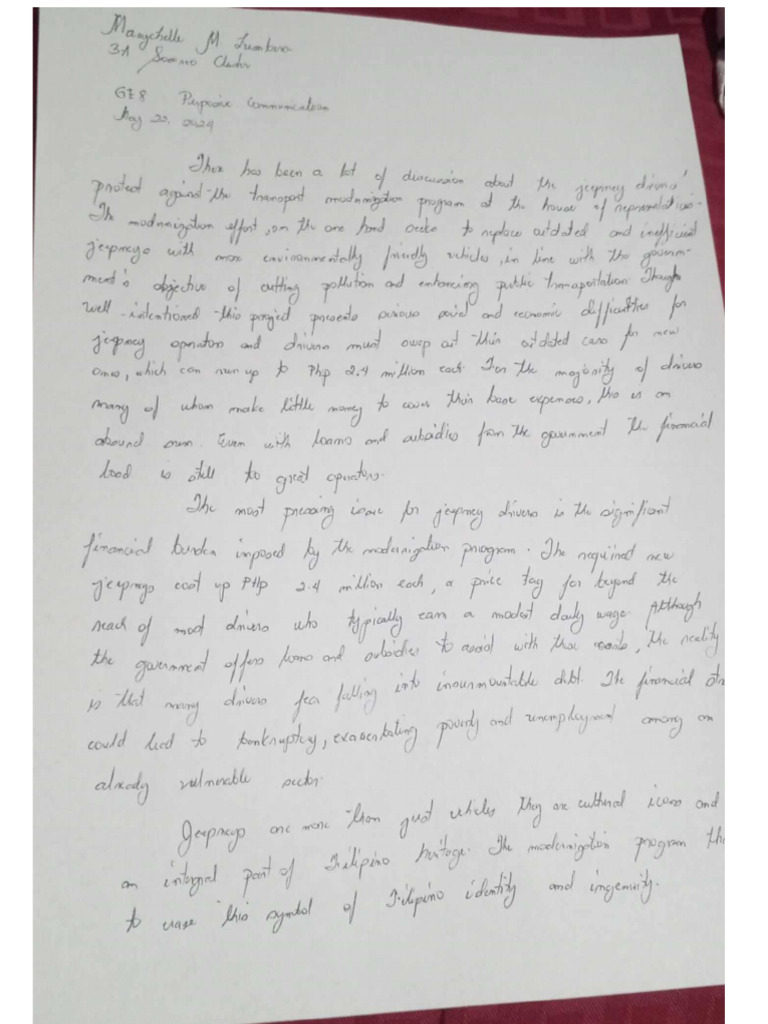 Marychelle M
3A
GE8 Purposive Communication
May 22, 2024
There has been a lot of discussion about the jeepney drivers'
protest against the transport modernization program at the house of representatives.
The modernization effort, on the one hand seeks to replace outdated and inefficient
jeepneys with more environmentally friendly vehicles, in line with the govern-
ment's objective of cutting pollution and enhancing public transportation. Though
well-intentioned this project presents serious social and economic difficulties for
jeepney operators and drivers must swap out their outdated cars for new
ones, which can run up to Php 2.4 million each. For the majority of drivers
many of whom make little money to cover their base expenses, this is an
absurd sum. Even with loans and subsidies from the government the financial
load is still to great operators.
The most pressing issue for jeepney drivers is the significant
financial burden imposed by the modernization program. The required new
jeepneys cost up PHp 2.4 million each, a price tag far beyond the
reach of most drivers who typically earn a modest daily wage. Although
the government offers loans and subsidies to assist with these costs, the reality
is that many drivers fear falling into insurmountable debt. The financial
could lead to bankruptcy, exacerbating poverty and unemployment among an
already vulnerable sector.
Jeepneys are more than just vehicles they are cultural icons and
an intergral part of Filipino heritage. The modernization program
to erase this symbol of Filipino identity and ingenuity.